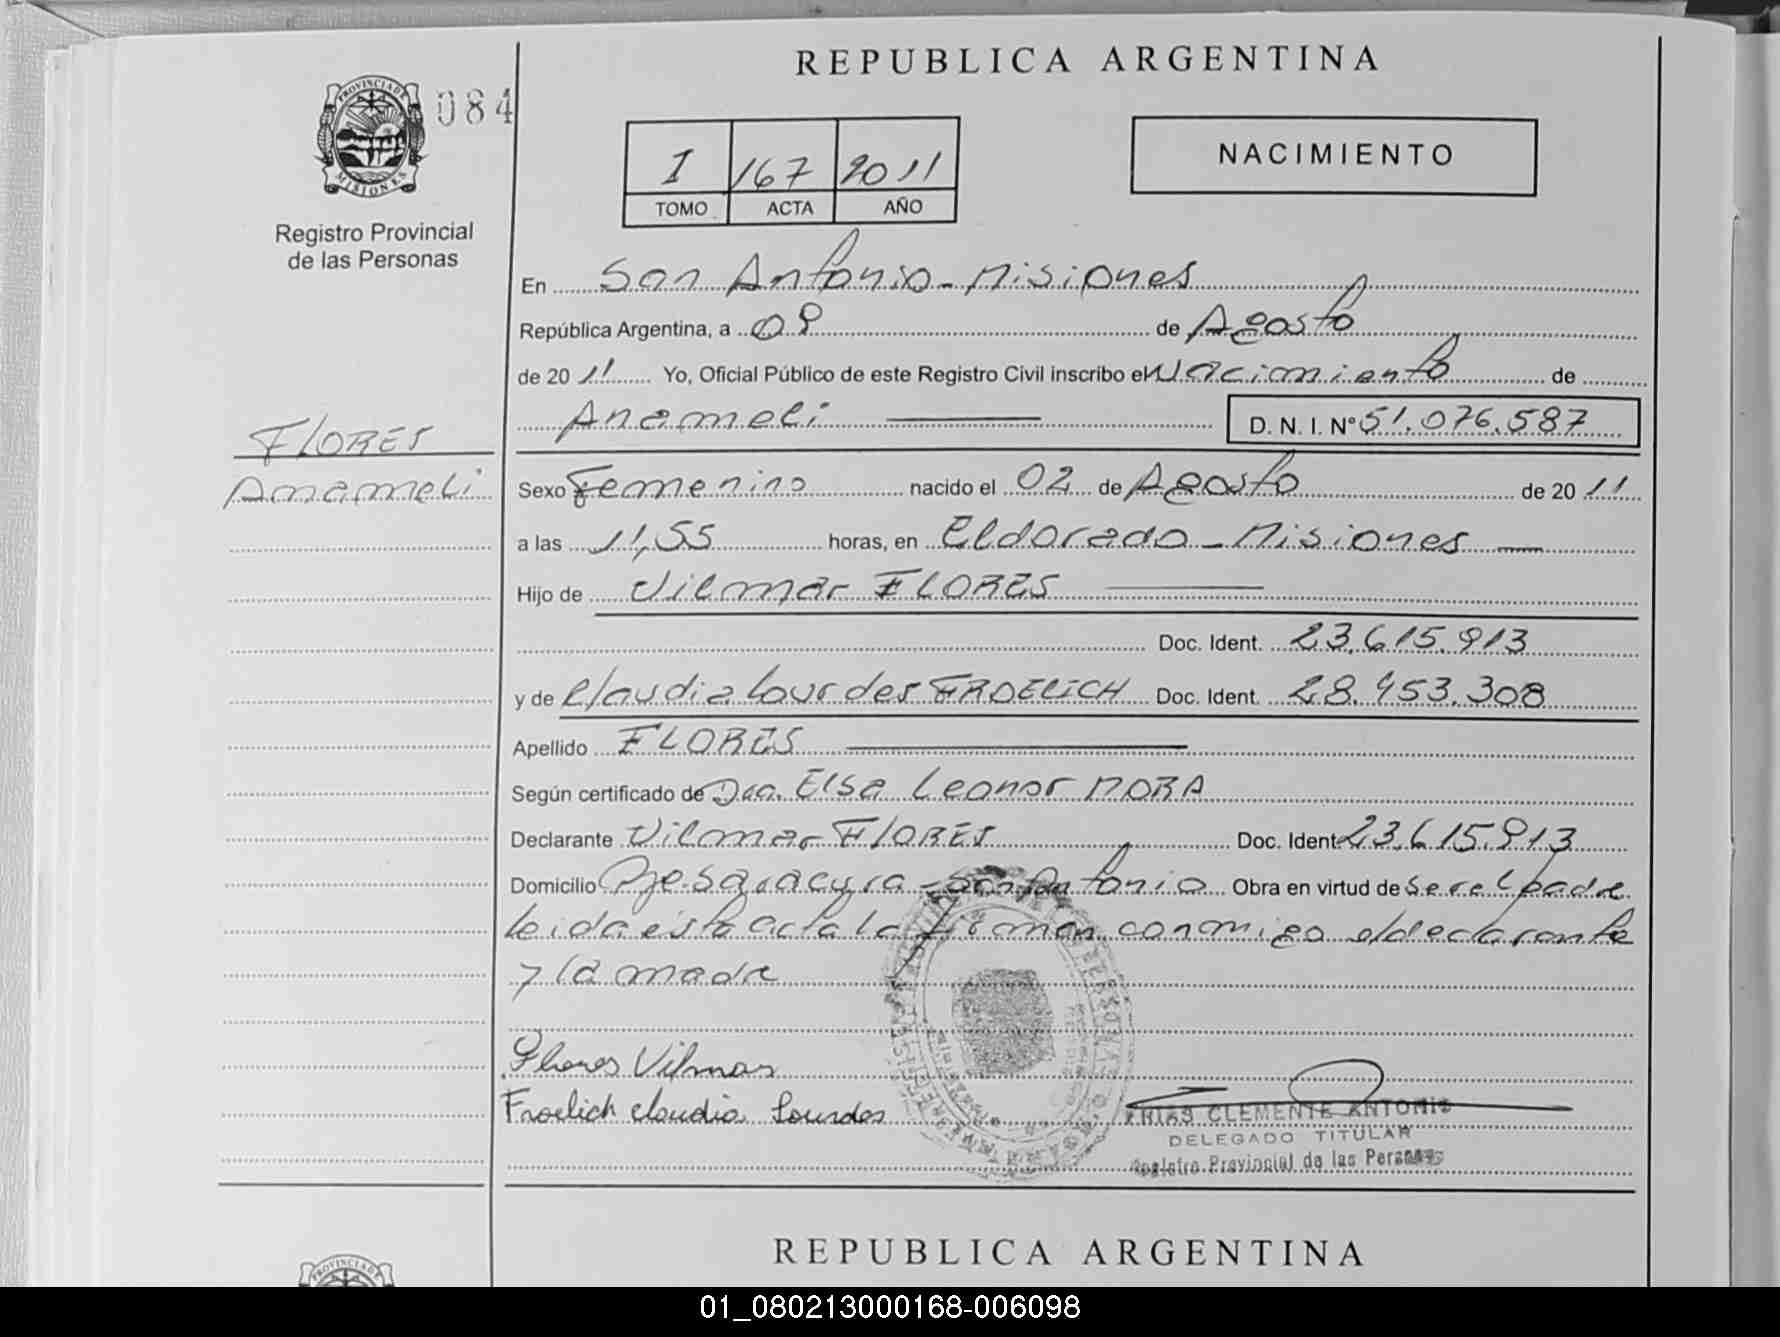 REPUBLICA ARGENTINA
PROVINCIA DE MISIONES
084
Registro Provincial
de las Personas
I 167 2011
TOMO ACTA AÑO
NACIMIENTO
En San Antonio - Misiones
República Argentina, a 09 de Agosto
de 2011 Yo, Oficial Público de este Registro Civil inscribo el Nacimiento de
Anameli D. N. I. N° 51.076.587
FLORES
Anameli
Sexo Femenino nacido el 02 de Agosto de 2011
a las 11,55 horas, en Eldorado - Misiones
Hijo de Vilmar FLORES
Doc. Ident. 23.615.913
y de Claudia Lourdes FROELICH Doc. Ident. 28.453.308
Apellido FLORES
Según certificado de Dra. Elsa Leonor MORA
Declarante Vilmar FLORES Doc. Ident 23.615.913
Domicilio Pje. Saracura - San Antonio Obra en virtud de ser el padre
leida esta acta la firman conmigo el declarante
y la madre
Flores Vilmar
Froelich Claudia Lourdes
FRIAS CLEMENTE ANTONIO
DELEGADO TITULAR
Registro Provincial de las Personas
REPUBLICA ARGENTINA
PROVINCIA DE
01_080213000168-006098